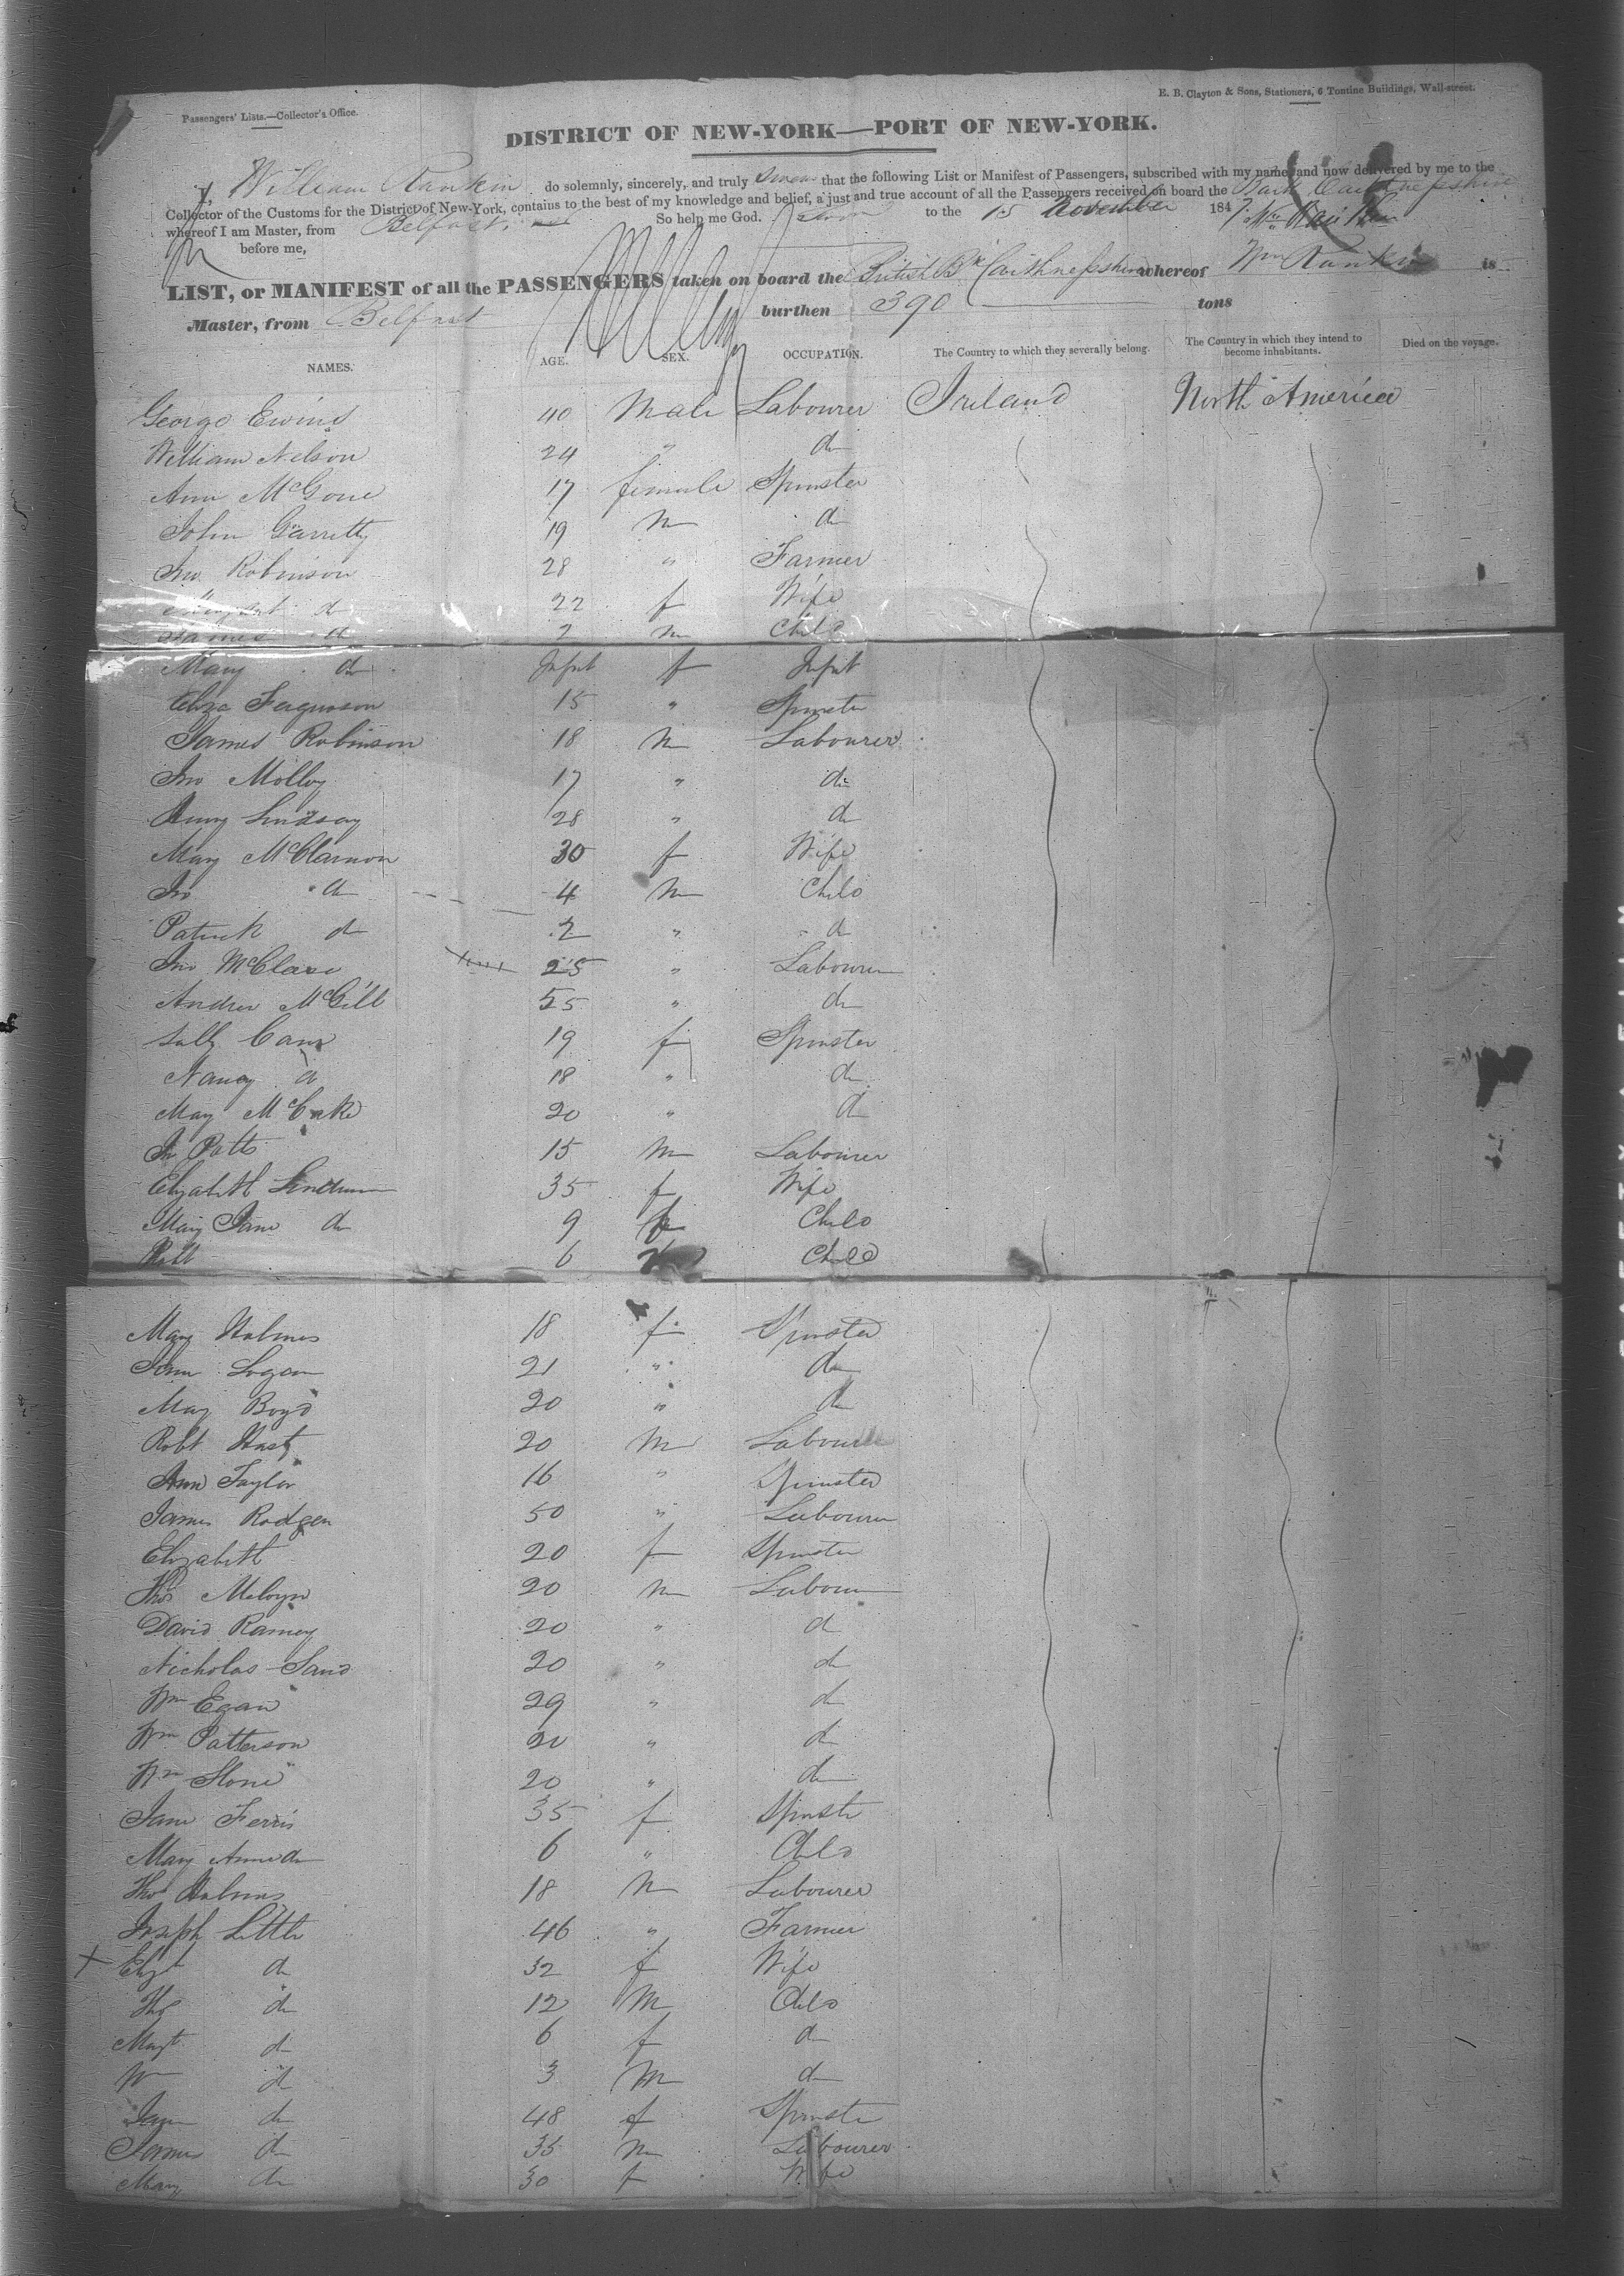 Passengers' Lists.—Collector's Office.
E. B. Clayton & Sons, Stationers, 6 Tontine Buildings, Wall-street.
DISTRICT OF NEW-YORK—PORT OF NEW-YORK.
I, William Rankin do solemnly, sincerely, and truly swear that the following List or Manifest of Passengers, subscribed with my name, and now delivered by me to the
Collector of the Customs for the District of New-York, contains to the best of my knowledge and belief, a just and true account of all the Passengers received on board the Bark Caithnesshire
whereof I am Master, from Belfast So help me God. Sworn to the 15 November 1847 Wm Rankin
before me,
LIST, or MANIFEST of all the PASSENGERS taken on board the British Bk Caithnesshire whereof Wm Rankin is
Master, from Belfast burthen 390 tons
NAMES. AGE. SEX. OCCUPATION. The Country to which they severally belong. The Country in which they intend to become inhabitants. Died on the voyage.
George Ewing 40 Male Labourer Ireland North America
William Nelson 24 " do
Ann McGone 17 female Spinster
John Garretty 19 m do
Jno Robinson 28 " Farmer
Margart do 22 f Wife
James do 2 m Child
Mary do Infnt f Infnt
Eliza Fergusson 15 " Spinster
James Robinson 18 m Labourer
Jno Molloy 17 " do
Henry Lindsay 28 " do
Mary McClarnon 30 f Wife
Jno do 4 m Child
Patrick do 2 " do
Jno McClave 25 " Labourer
Andrew McGill 55 " do
Sally Cann 19 f Spinster
Nancy do 18 " do
May McCake 20 " do
Jn Patts 15 m Labourer
Elizabeth 35 f Wife
Mary Jane do 9 f Child
Robt 6 Child
Mary Holmes 18 f Spinster
Jane Logan 21 " do
May Boyd 20 " do
Robt Hasty 20 m Labourer
Ann Taylor 16 " Spinster
James Rodgers 50 " Labourer
Elizabeth 20 f Spinster
Thos Melvyn 20 m Labourer
David Ramey 20 " do
Nicholas Sand 20 " do
Wm Egan 29 " do
Wm Patterson 20 " do
Wm Stone 20 " do
Jane Ferris 35 f Spinster
Mary Anne do 6 " Child
Thos Holmes 18 m Labourer
Joseph Little 46 " Farmer
X Elizt do 32 f Wife
Thos do 12 M Child
Magt do 6 f do
Wm do 3 M do
Jane do 48 f Spinster
James do 35 m Labourer
Mary do 30 f Wife